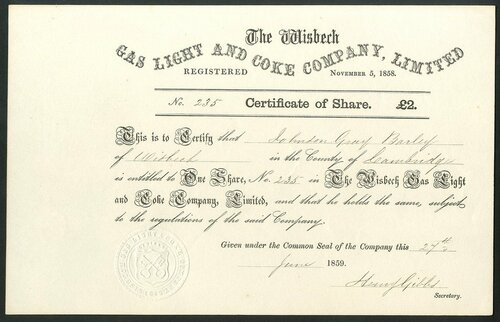 The Wisbech
GAS LIGHT AND COKE COMPANY, LIMITED
REGISTERED NOVEMBER 5, 1858.
No. 235 Certificate of Share. £2.
This is to Certify that Johnson Gray
of Wisbech in the County of Cambridge
is entitled to One Share, No. 235 in The Wisbech Gas Light
and Coke Company, Limited, and that he holds the same, subject
to the regulations of the said Company.
Given under the Common Seal of the Company this 27th
June 1859.
Henry Gibbs
Secretary.